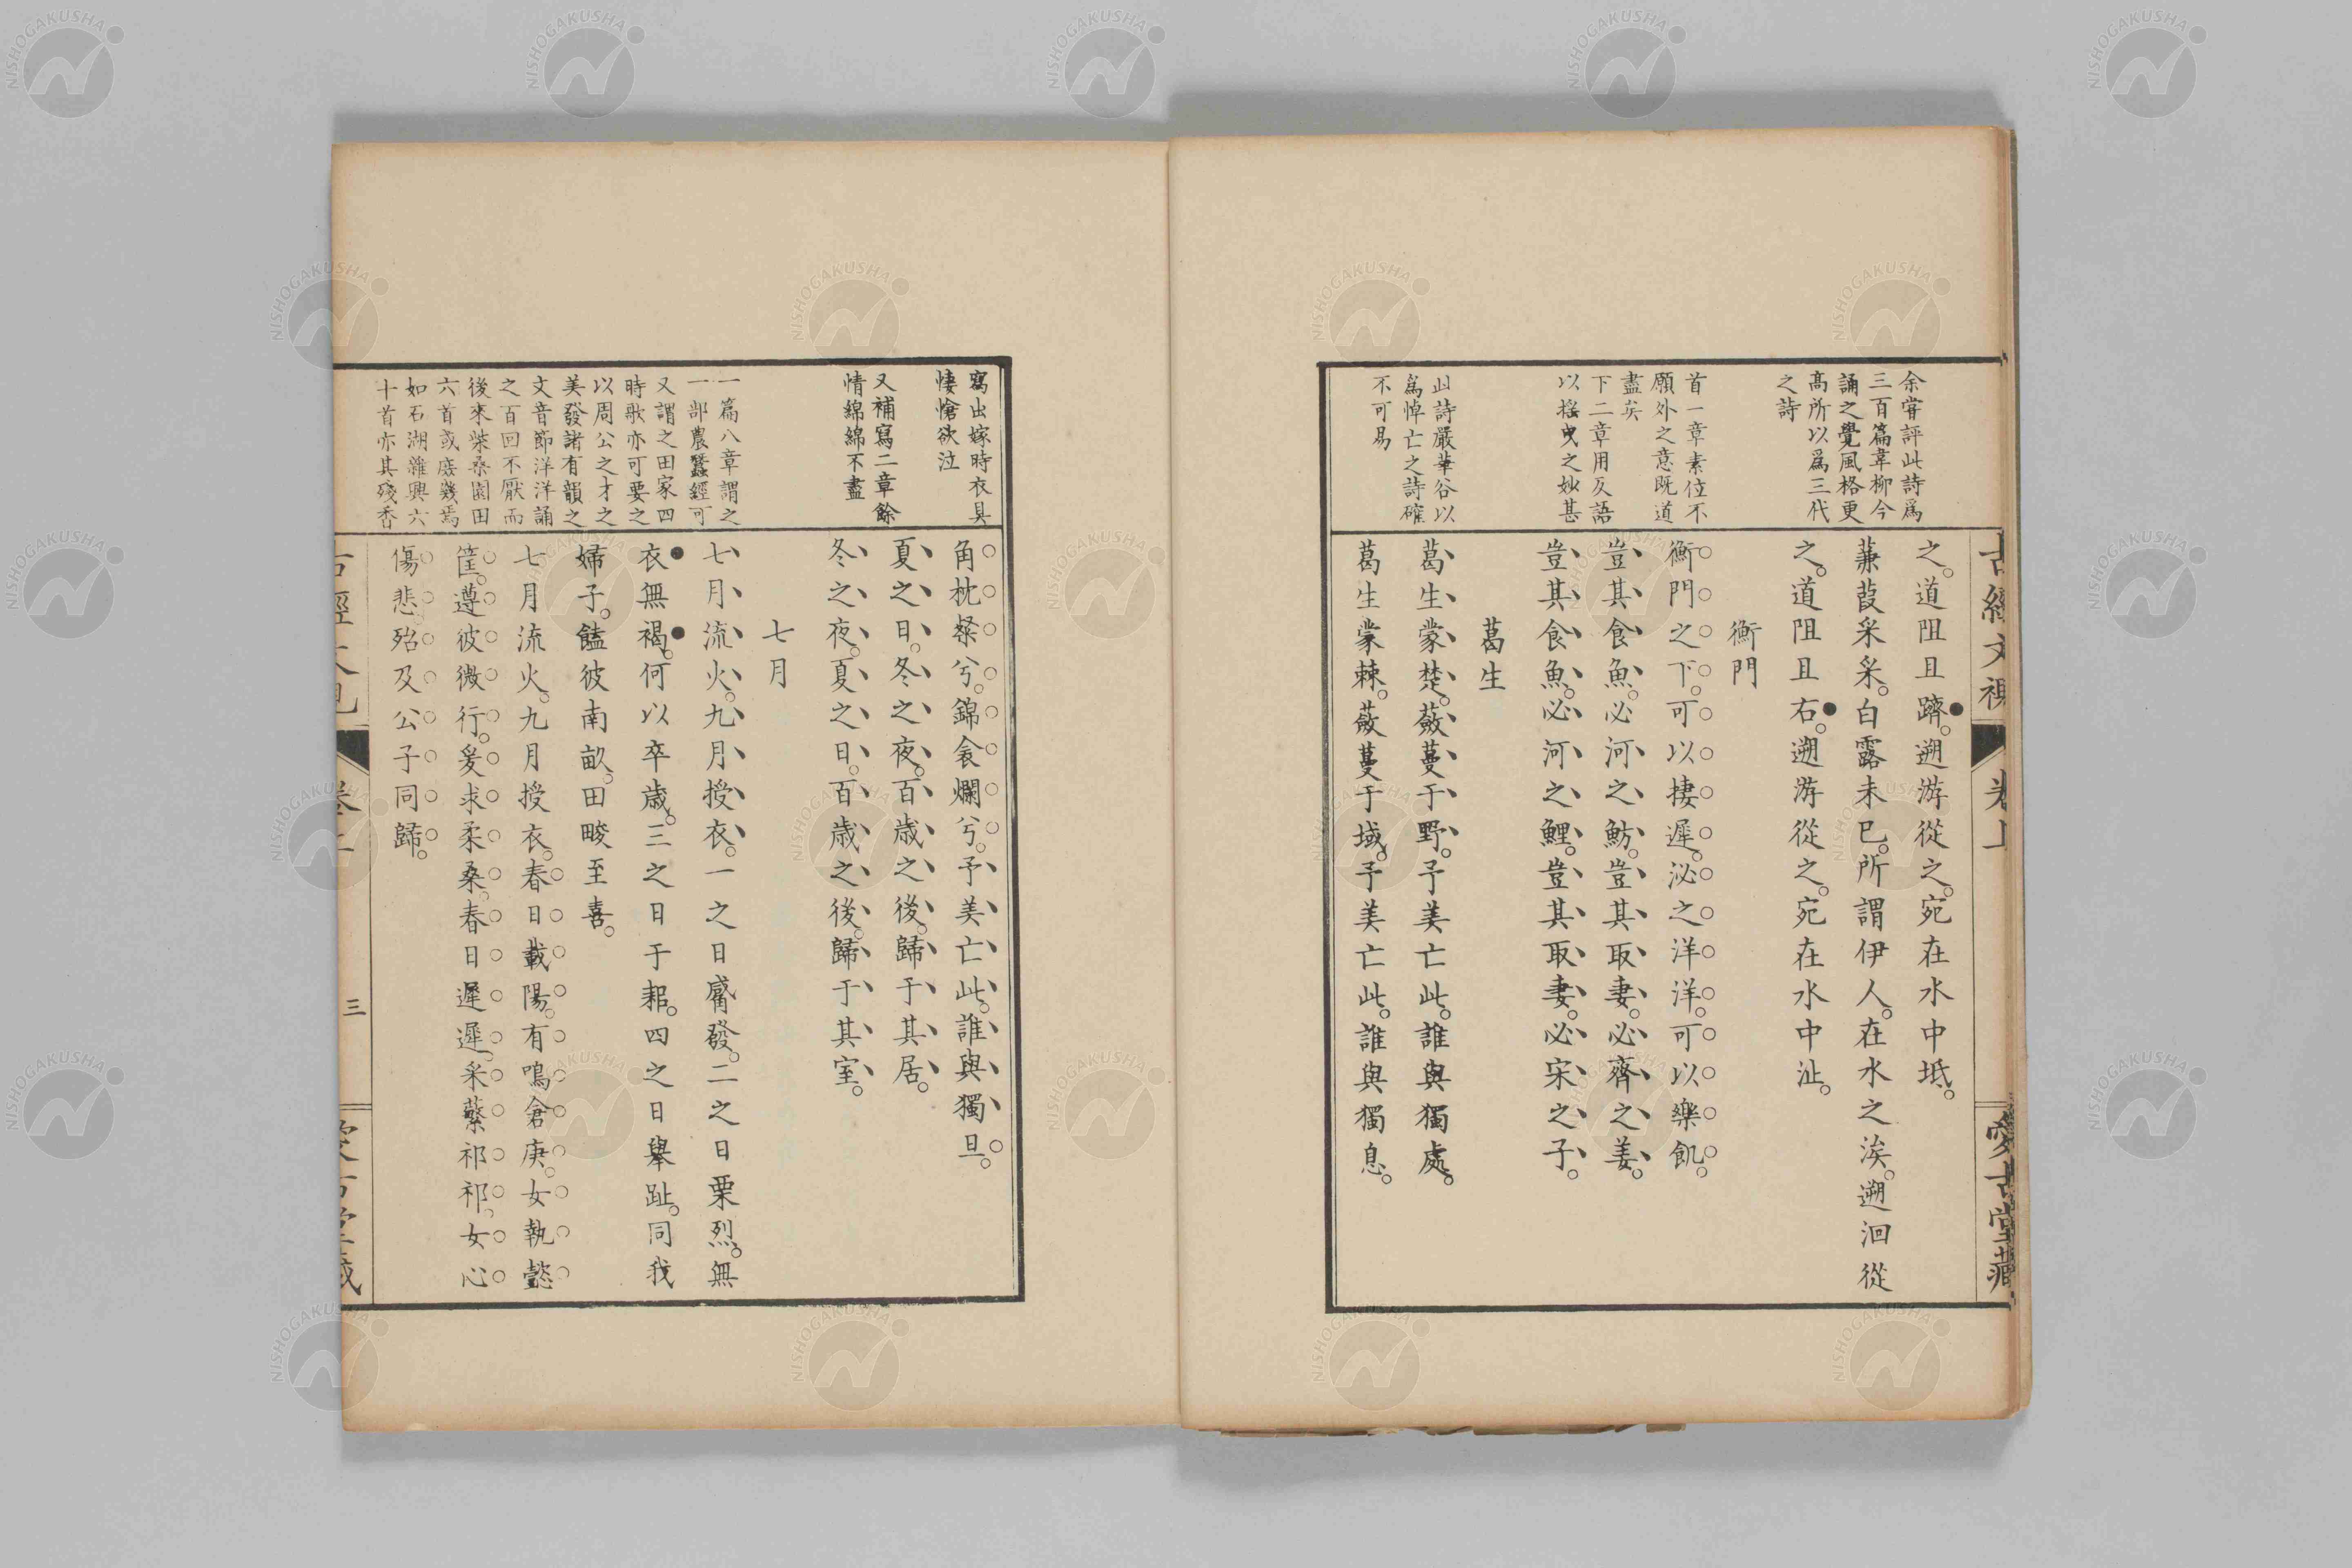 余甞評此詩爲
三百篇韋柳今
誦之覺風格更
高所以爲三代
之詩
首一章素位不
願外之意既道
盡矣
下二章用反語
以揺曳之妙甚
此詩嚴華谷以
爲悼亡之詩確
不可易
之。道阻且躋。遡游從之。宛在水中坻。
蒹葭采采。白露未已。所謂伊人。在水之涘。遡洄從
之。道阻且右。遡游從之。宛在水中沚。
衡門
衡門之下。可以棲遲。泌之洋洋。可以樂飢。
豈其食魚。必河之魴。豈其取妻。必齊之姜。
豈其食魚。必河之鯉。豈其取妻。必宋之子。
葛生
葛生蒙楚。蘞蔓于野。予美亡此。誰與獨處。
葛生蒙棘。蘞蔓于域。予美亡此。誰與獨息。
卷上
愛古堂藏
寫出嫁時衣具
悽愴欲泣
又補寫二章餘
情綿綿不盡
一篇八章謂之
一部農蠶經可
又謂之田家四
時歌亦可要之
以周公之才之
美發諸有韻之
文音節洋洋誦
之百回不厭而
後來柴桑園田
六首或庶幾焉
如石湖雜興六
十首亦其殘香
角枕粲兮。錦衾爛兮。予美亡此。誰與獨旦。
夏之日。冬之夜。百歳之後。歸于其居。
冬之夜。夏之日。百歳之後。歸于其室。
七月
七月流火。九月授衣。一之日觱發。二之日栗烈。無
衣無褐。何以卒歳。三之日于耜。四之日舉趾。同我
婦子。饁彼南畝。田畯至喜。
七月流火。九月授衣。春日載陽。有鳴倉庚。女執懿
筐。遵彼微行。爰求柔桑。春日遲遲。采蘩祁祁。女心
傷悲。殆及公子同歸。
三